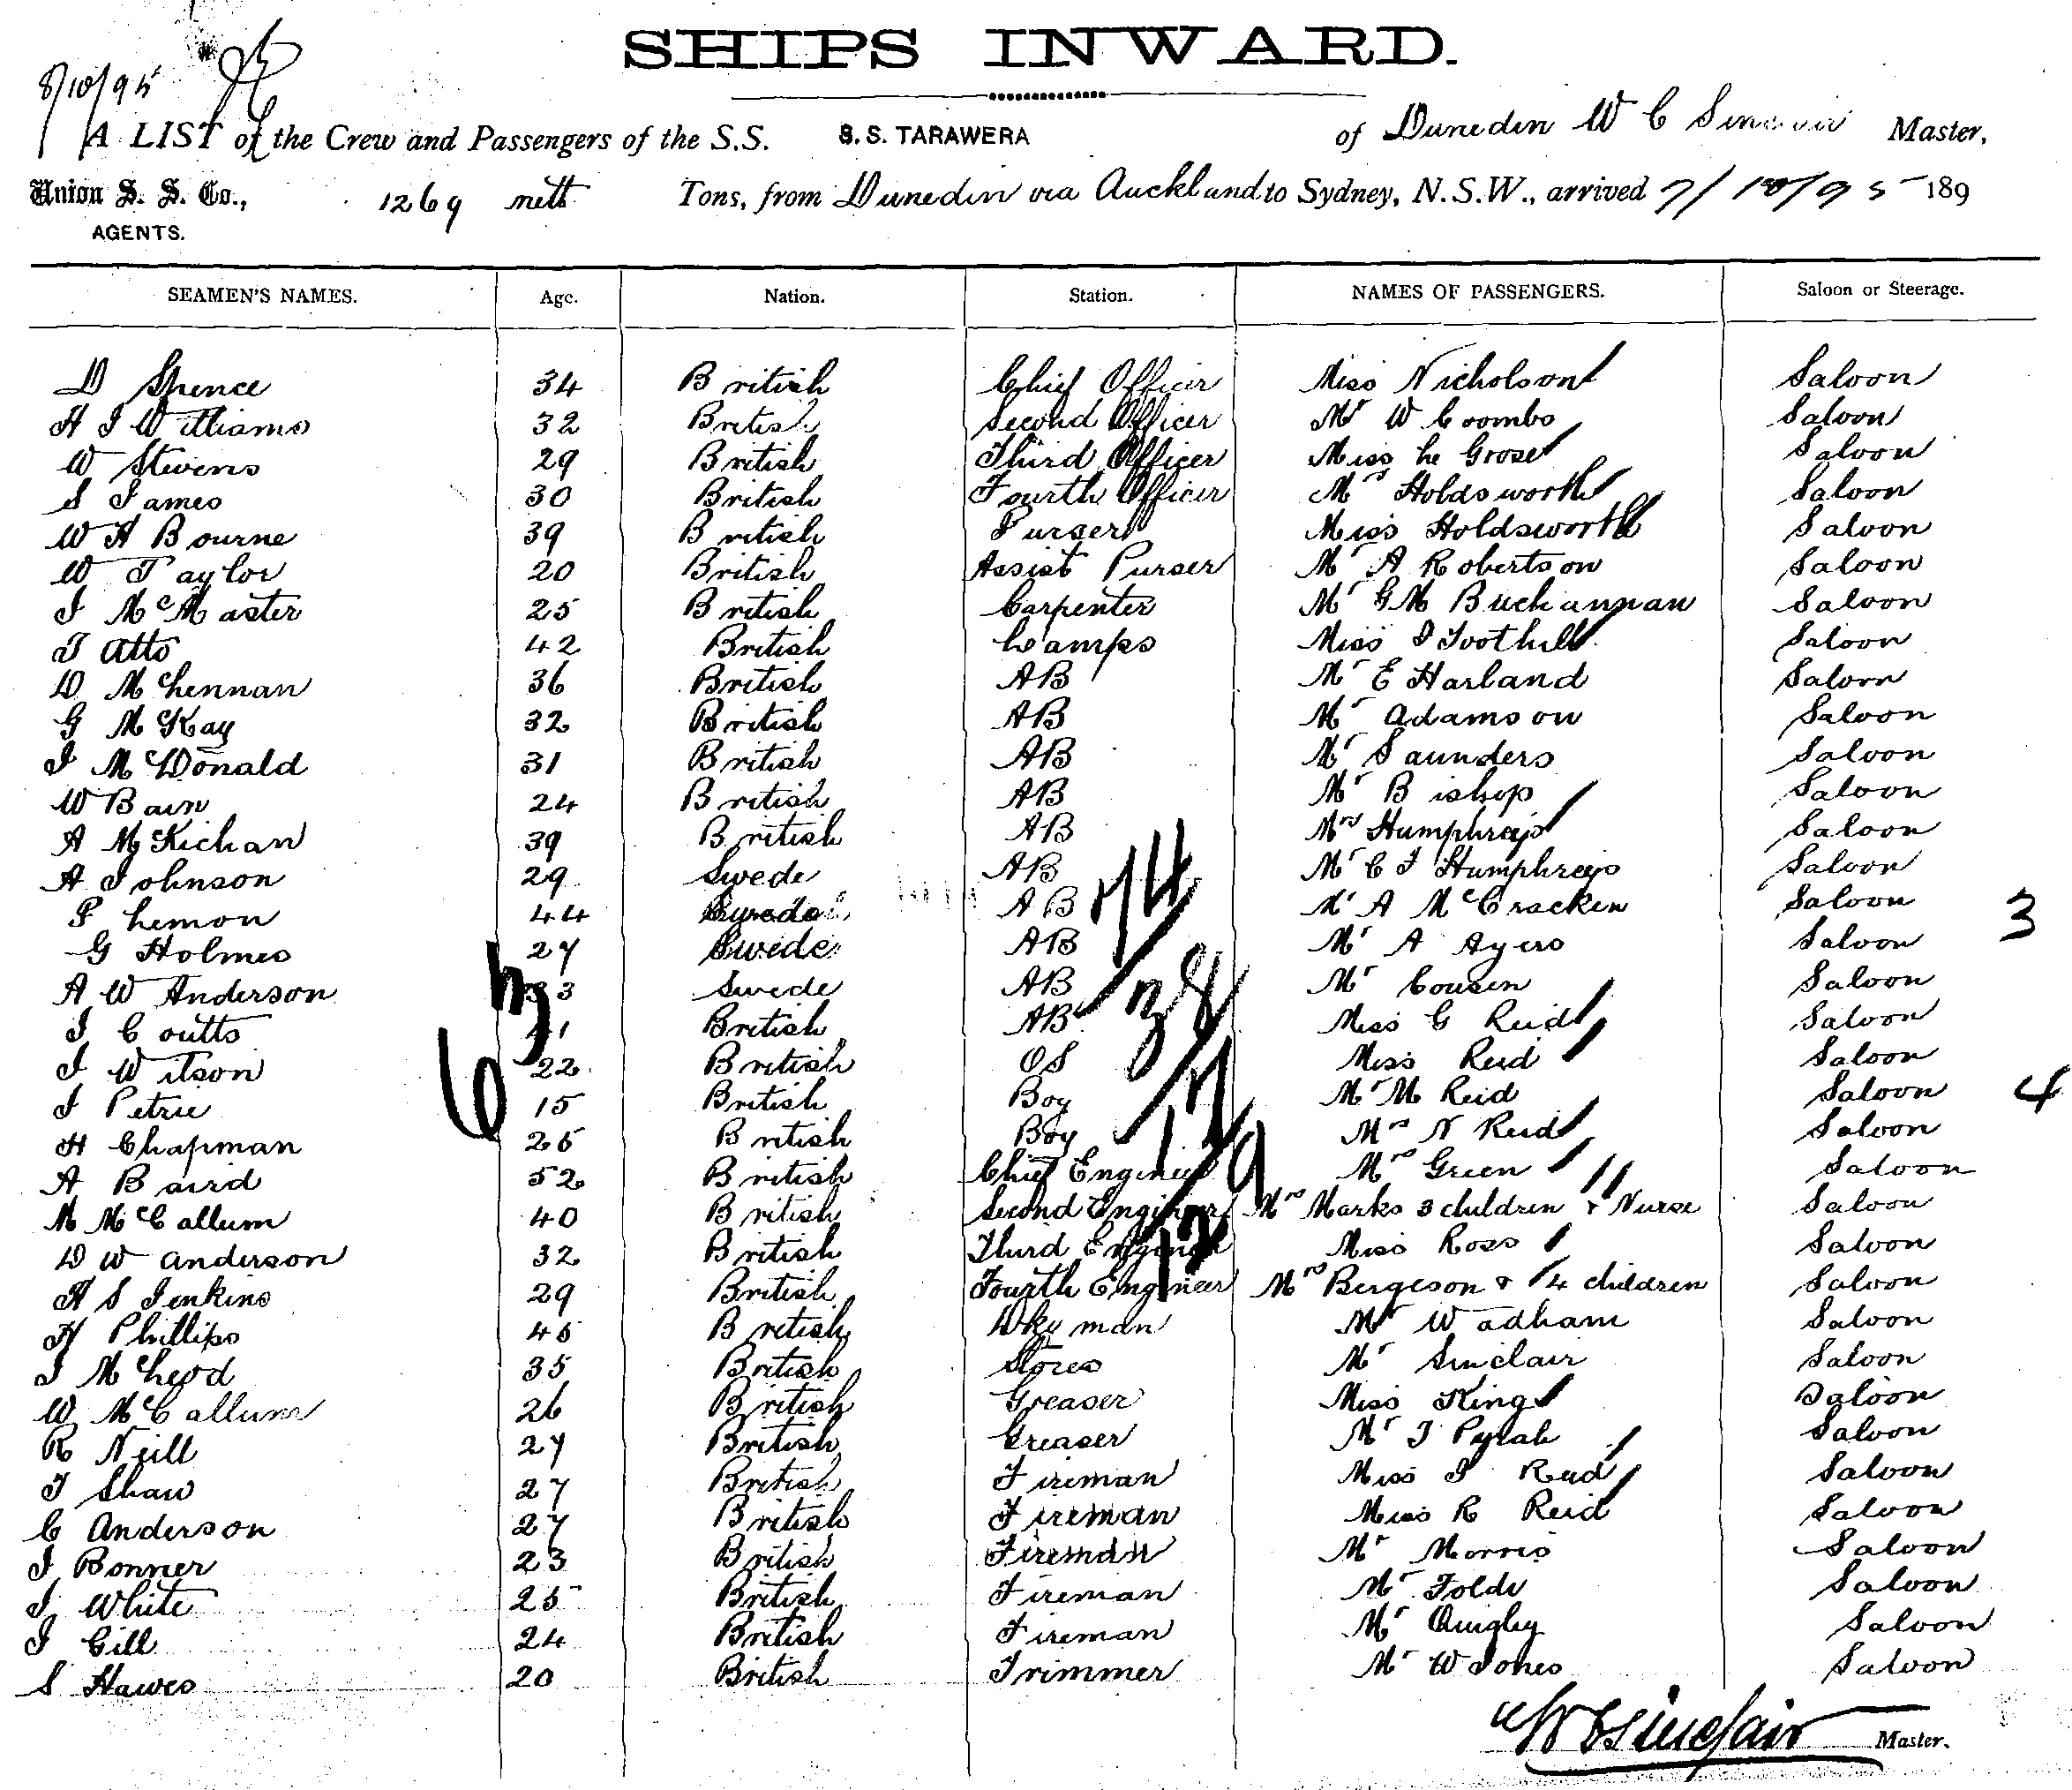 SHIPS INWARD.
8/10/95
A LIST of the Crew and Passengers of the S.S. S.S. TARAWERA of Dunedin W C Sinclair Master,
Union S. S. Co., 1269 nett Tons, from Dunedin via Auckland to Sydney, N.S.W., arrived 7/10/95 189
AGENTS.
SEAMEN'S NAMES. Age. Nation. Station. NAMES OF PASSENGERS. Saloon or Steerage.
D Spence 34 British Chief Officer Miss Nicholson Saloon
H J Williams 32 British Second Officer Mr W Coombs Saloon
W Stevens 29 British Third Officer Miss Le Grose Saloon
S James 30 British Fourth Officer Mrs Holdsworth Saloon
W H Bourne 39 British Purser Miss Holdsworth Saloon
W Taylor 20 British Assist Purser Mr A Robertson Saloon
J McMaster 25 British Carpenter Mr G M Buchannan Saloon
T Atto 42 British Lamps Miss J Toothill Saloon
D McLennan 36 British AB Mr E Harland Saloon
G McKay 32 British AB Mr Adamson Saloon
J McDonald 31 British AB Mr Saunders Saloon
W Bain 24 British AB Mr Bishop Saloon
A McKichan 39 British AB Mrs Humphreys Saloon
A Johnson 29 Swede AB Mr C J Humphreys Saloon
P Lemon 44 AB Mr A McCracken Saloon 3
G Holmes 27 Swede AB Mr A Ayers Saloon
A W Anderson 33 Swede AB Mr Cousin Saloon
J Coutts 41 British AB Miss G Reid Saloon
J Wilson 22 British OS Miss Reid Saloon
J Petrie 15 British Boy Mr M Reid Saloon 4
H Chapman 25 British Boy Mrs N Reid Saloon
A Baird 52 British Chief Engineer Mrs Green Saloon
M McCallum 40 British Second Engineer Mrs Marks 3 children & Nurse Saloon
D W Anderson 32 British Third Engineer Miss Ross Saloon
H S Jenkins 29 British Fourth Engineer Mrs Bergeson & 4 children Saloon
H Phillips 45 British Dky man Mr Wadham Saloon
J McLeod 35 British Stores Mr Sinclair Saloon
W McCallum 26 British Greaser Miss King Saloon
R Neill 27 British Greaser Mr J Pylah Saloon
T Shaw 27 British Fireman Miss J Reid Saloon
C Anderson 27 British Fireman Miss R Reid Saloon
J Bonner 23 British Fireman Mr Morris Saloon
J White 25 British Fireman Mr Foldi Saloon
J Gill 24 British Fireman Mr Quigley Saloon
S Hawes 20 British Trimmer Mr W Jones Saloon
W C Sinclair Master.